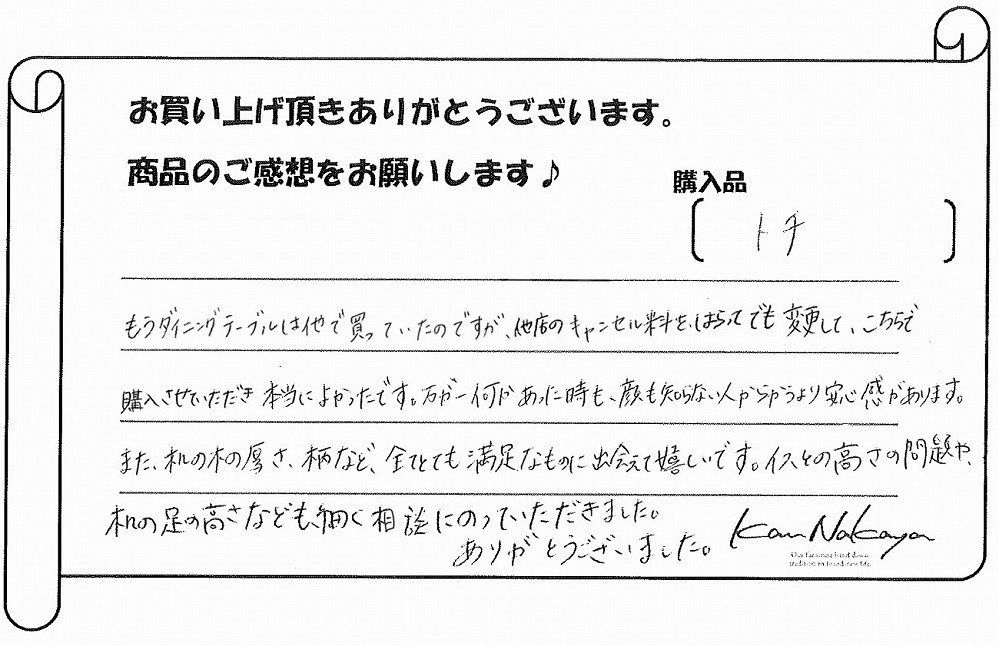 お買い上げ頂きありがとうございます。
商品のご感想をお願いします♪
購入品
トチ
もうダイニングテーブルは他で買っていたのですが、他店のキャンセル料を、はらってでも変更して、こちらで
購入させていただき本当によかったです。万が一何かあった時も、顔も知らない人からかうより安心感があります。
また、机の木の厚さ、柄など、全てとても満足なものに出会えて嬉しいです。イスとの高さの問題や、
机の足の高さなども、細く相談にのっていただきました。
ありがとうございました。
Kan Nakaya
Our furniture hand down
tradition